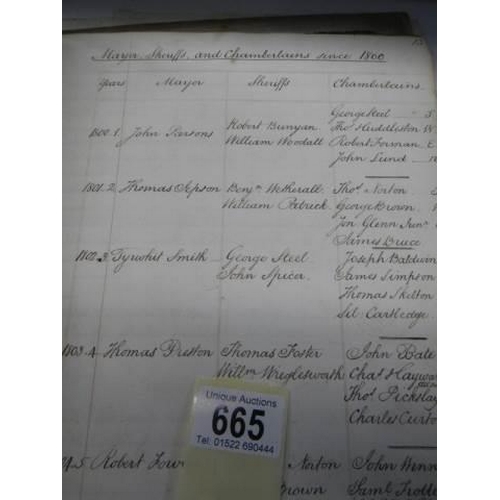 Mayor Sheriffs and Chamberlains since 1800
Years Mayor Sheriffs Chamberlains
George Steel
1800.1. John Robert Bunyan Thos Huddleston
William Woodall Robert Forman
John Lund
1801.2 Thomas Benjn Wetherall Thos Norton
William Patrick George Brown
Jon Glenn Junr
James Bruce
1802.3 Tyrwhit Smith George Steel Joseph Baldwin
John Spicer James Simpson
Thomas Skelton
Sil Cartledge
1803.4 Thomas Preston Thomas Foster John Bate
Willm Wriglesworth Chas Haywar
Thos Pickslay
Charles Curto
Unique Auctions
665
Tel: 01522 690444
4.5 Robert Norton John Winn
Brown Saml Trotte